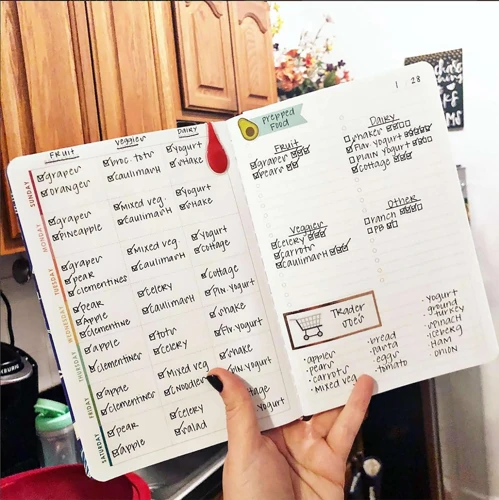 FRUIT
VEGGIES
DAIRY
SUNDAY
grapes
oranges
broc. tots
caulimash
yogurt
shake
MONDAY
grapes
pineapple
Mixed veg.
caulimash
yogurt
shake
TUESDAY
grapes
pear
clementines
Mixed veg
caulimash
yogurt
cottage
WEDNESDAY
pear
apple
clementine
celery
caulimash
cottage
Fun yogurt
THURSDAY
apple
clementines
tots
celery
shake
Flv yogurt
FRIDAY
apple
clementines
Mixed veg
C Noodles
shake
Fun yogurt
SATURDAY
pear
apple
celery
salad
yogurt
1 28
PREPPED
FOOD
FRUIT
grapes
pears
Veggies
celery
carrots
caulimash
Dairy
shakes
Flav yogurt
plain yogurt
cottage
Other
ranch
PB
TRADER
JOES
• apples
• pears
• carrots
• Mixed veg
• bread
• pasta
• eggs
• tomato
• yogurt
• ground
turkey
• spinach
• iceberg
• HAM
• onion